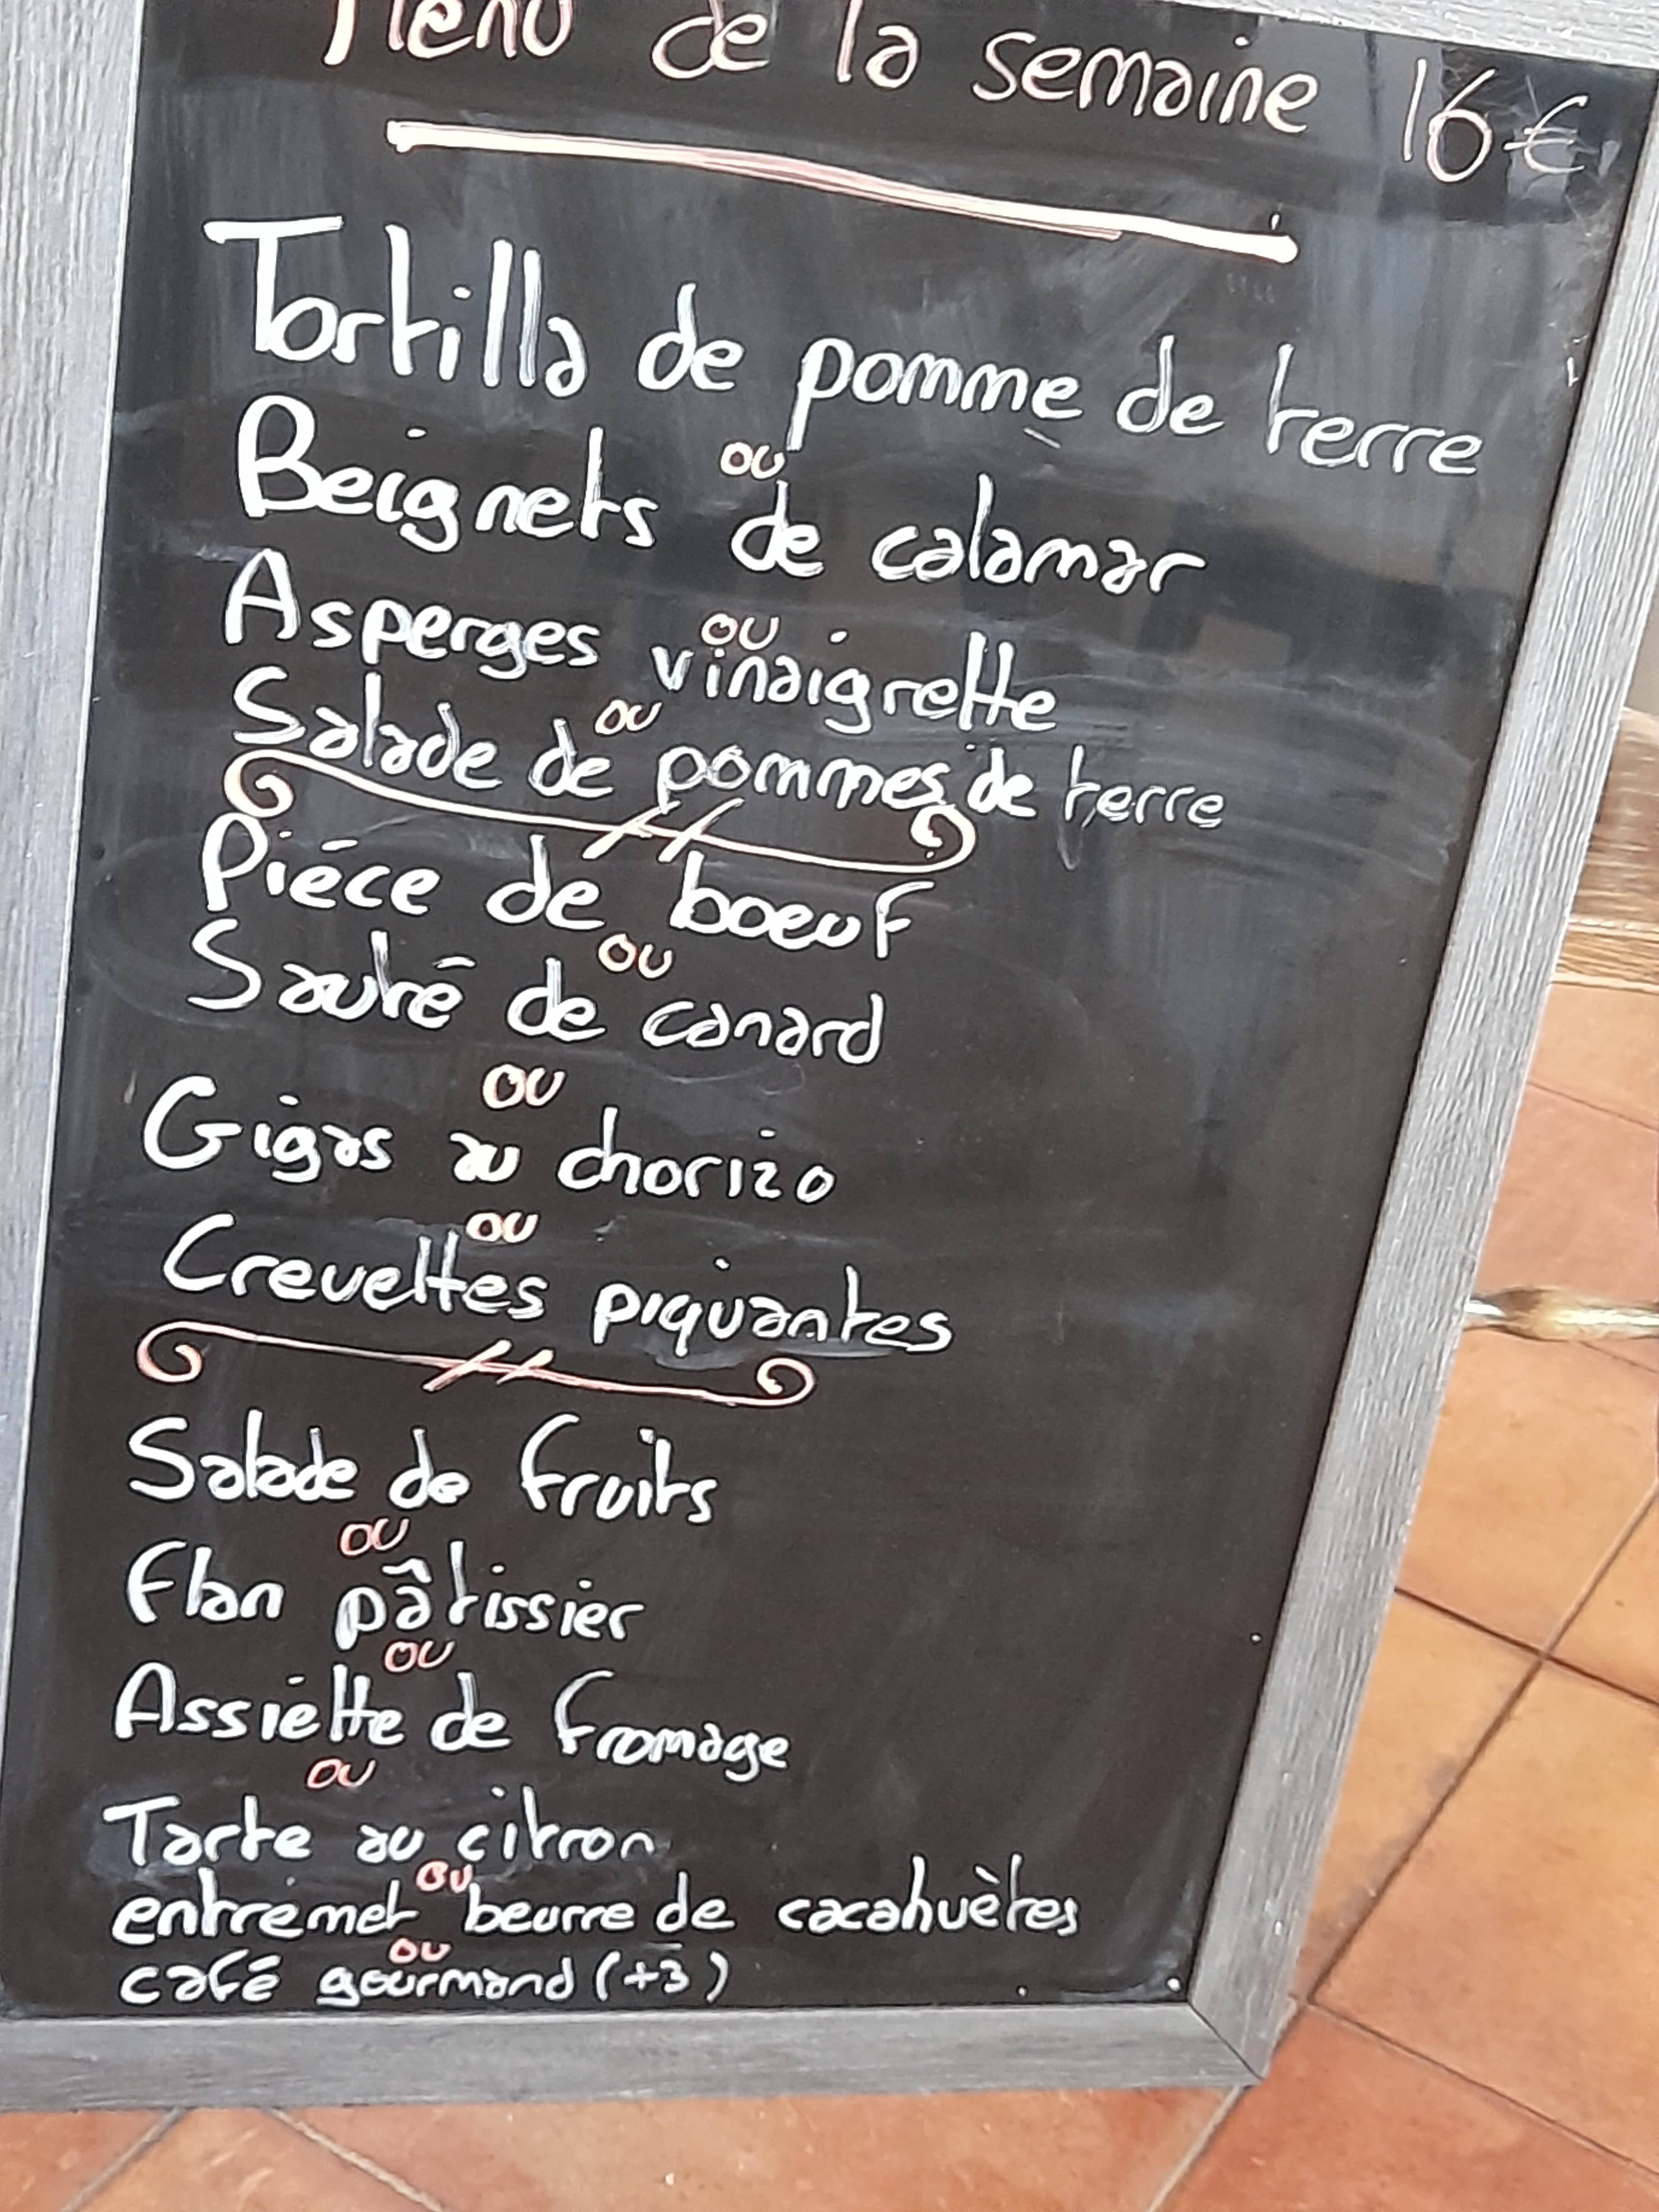 Menu de la semaine 16€
Tortilla de pomme de terre
ou
Beignets de calamar
ou
Asperges vinaigrette
ou
Salade de pommes de terre
Piéce de boeuf
ou
Sauté de canard
ou
Gigas au chorizo
ou
Crevettes piquantes
Salade de fruits
ou
Flan pâtissier
ou
Assiette de fromage
ou
Tarte au citron
ou
entremet beurre de cacahuètes
ou
café gourmand (+3)